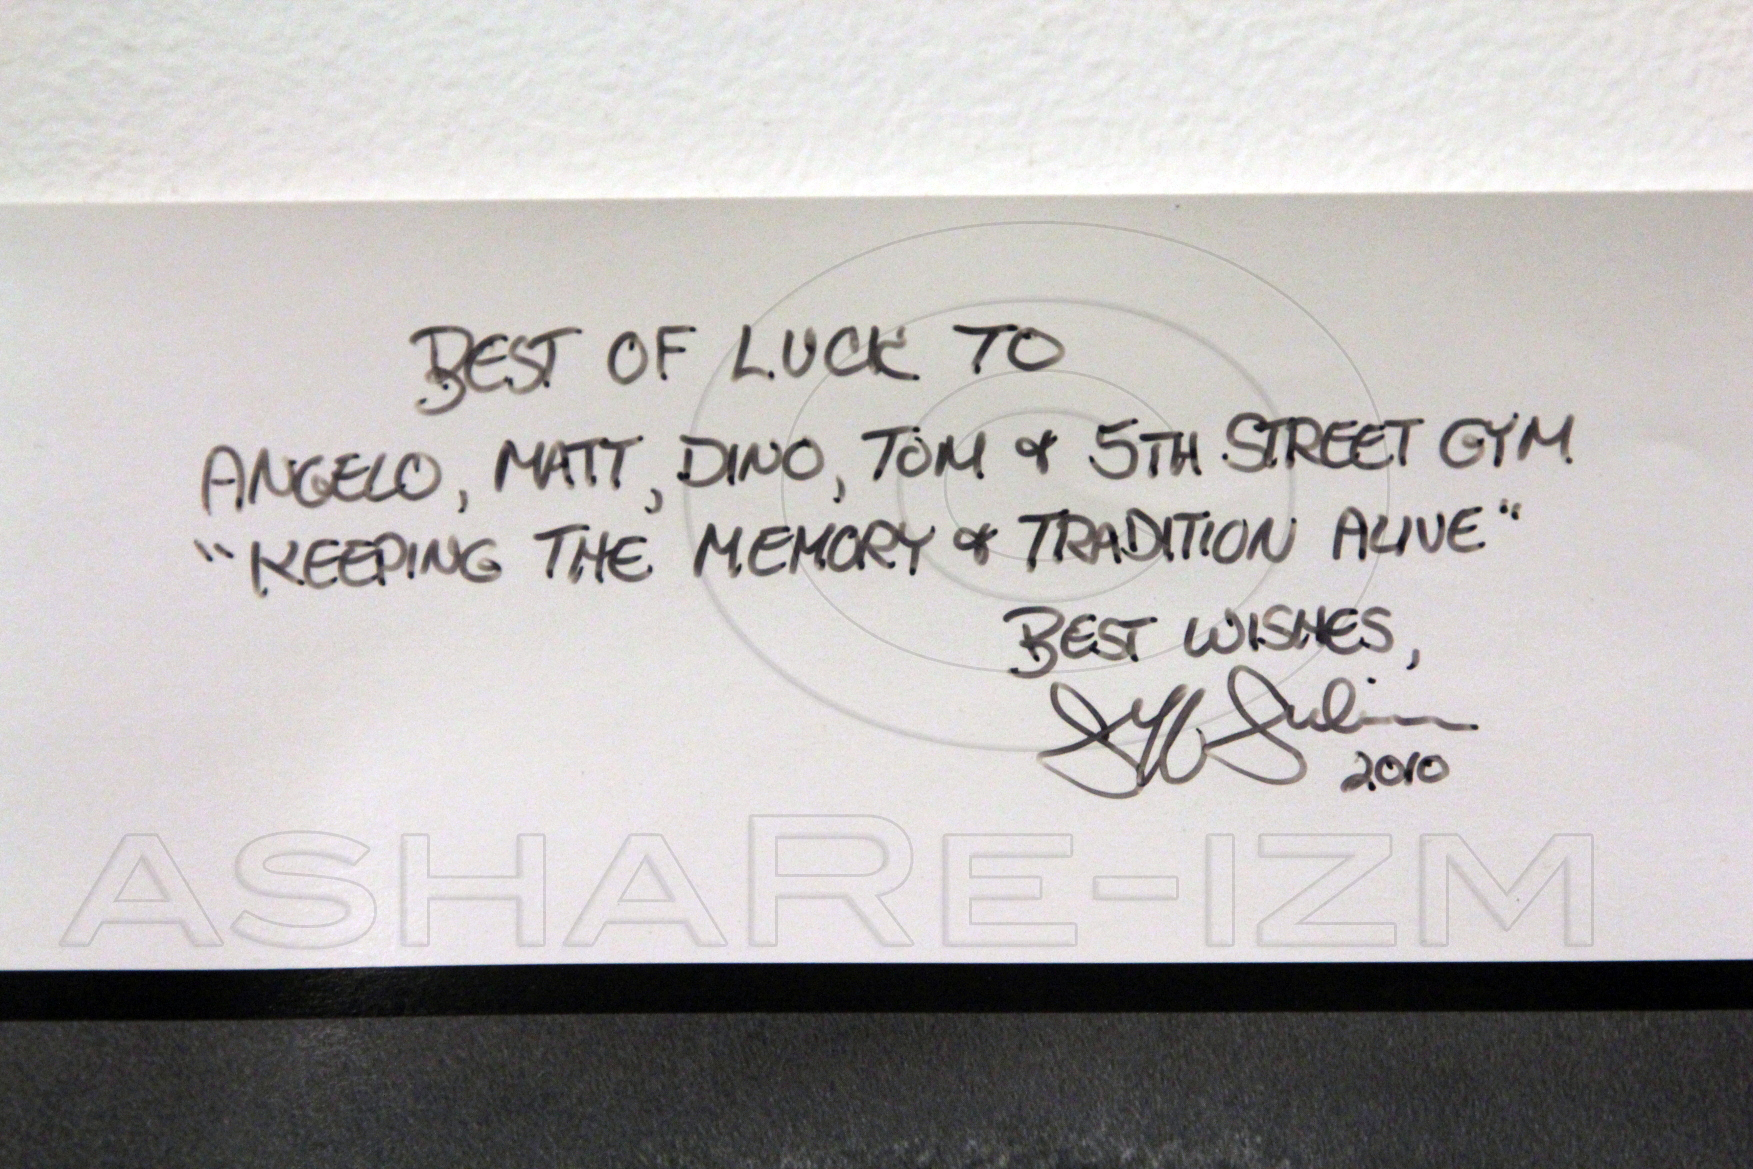 BEST OF LUCK TO
ANGELO, MATT, DINO, TOM & 5TH STREET GYM
"KEEPING THE MEMORY & TRADITION ALIVE"
BEST WISHES,
2010
ASHARE-IZM